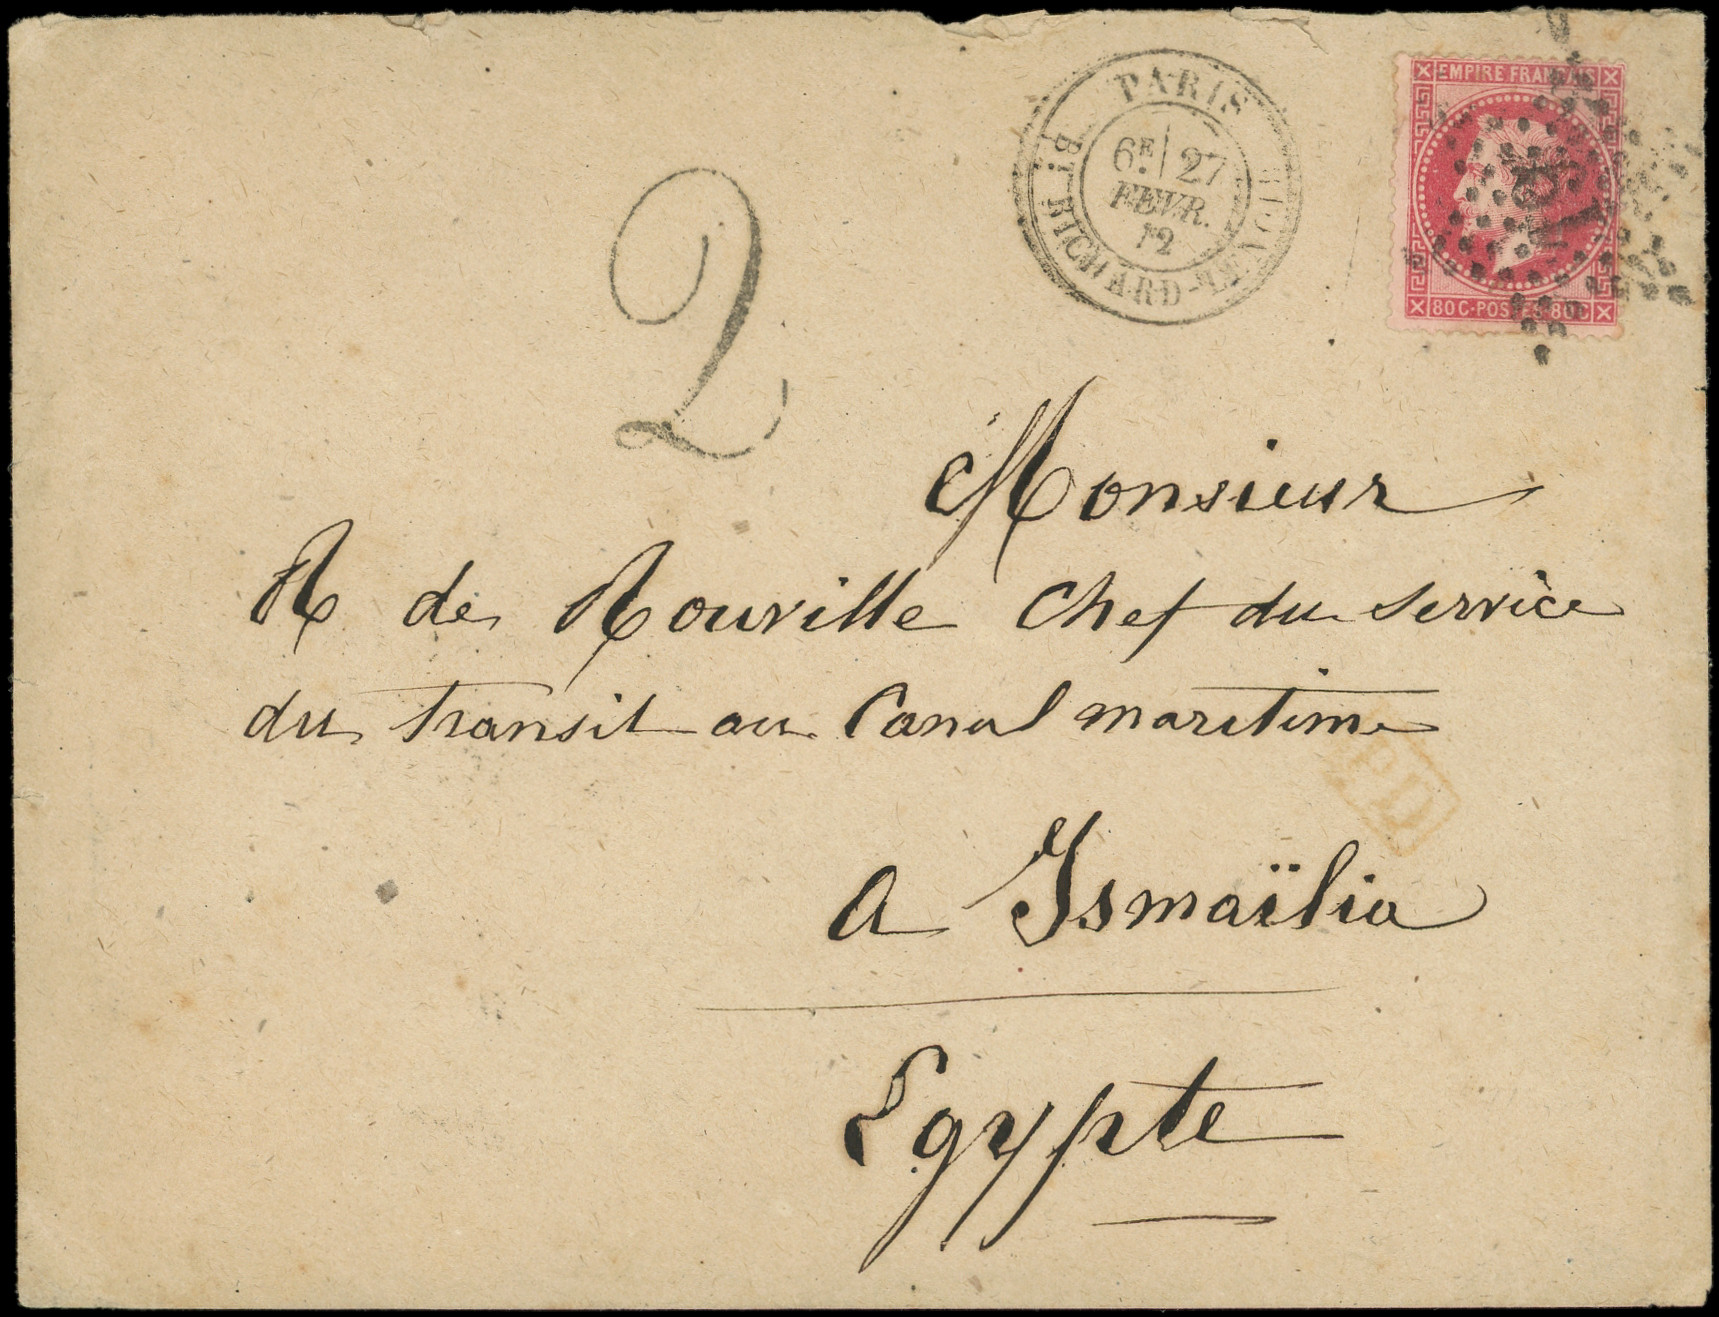 EMPIRE FRANÇAIS
80C·POSTES·80C
PARIS
6E 27
FEVR.
72
BT RICHARD-LENOIR
2
Monsieur
R de Rouville Chef du service
du transit au Canal maritime
PD
a Ismaïlia
Egypte